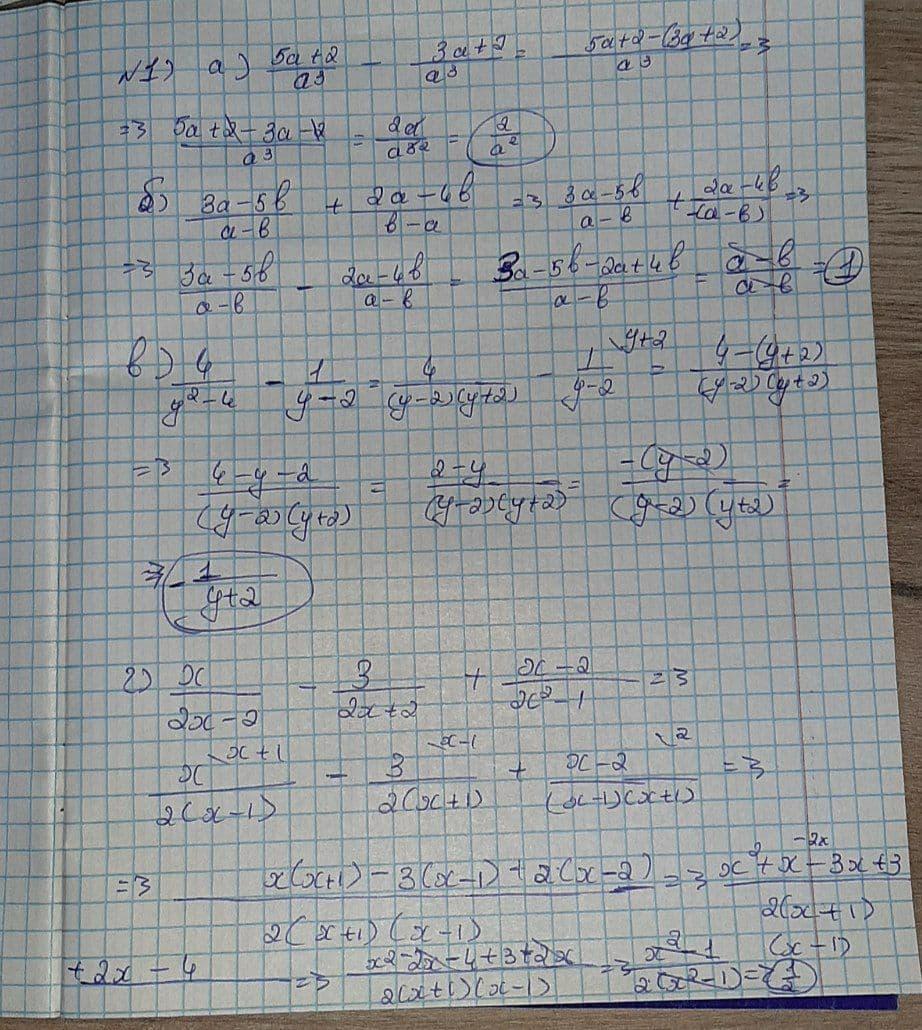 №1) а) (5a+2)/a³ − (3a+2)/a³ = (5a+2−(3a+2))/a³ =>
=> (5a+2−3a−2)/a³ = 2a/a³ = 2/a²
б) (3a−5b)/(a−b) + (2a−4b)/(b−a) => (3a−5b)/(a−b) + (2a−4b)/(−(a−b)) =>
=> (3a−5b)/(a−b) − (2a−4b)/(a−b) = (3a−5b−2a+4b)/(a−b) = (a−b)/(a−b) = 1
в) 4/(y²−4) − 1/(y−2) = 4/((y−2)(y+2)) − 1/(y−2) \y+2 = (4−(y+2))/((y−2)(y+2))
=> (4−y−2)/((y−2)(y+2)) = (2−y)/((y−2)(y+2)) = −(y−2)/((y−2)(y+2)) =
=> −1/(y+2)
г) x/(2x−2) − 3/(2x+2) + (x−2)/(x²−1) =>
x/(2(x−1)) \x+1 − 3/(2(x+1)) \x−1 + (x−2)/((x−1)(x+1)) \2 =>
=> (x(x+1)−3(x−1)+2(x−2))/(2(x+1)(x−1)) => (x²+x−3x+3 −2x)/(2(x+1)(x−1))
+2x−4 => (x²−2x−4+3+2x)/(2(x+1)(x−1)) => (x²−1)/(2(x²−1)) => 1/2